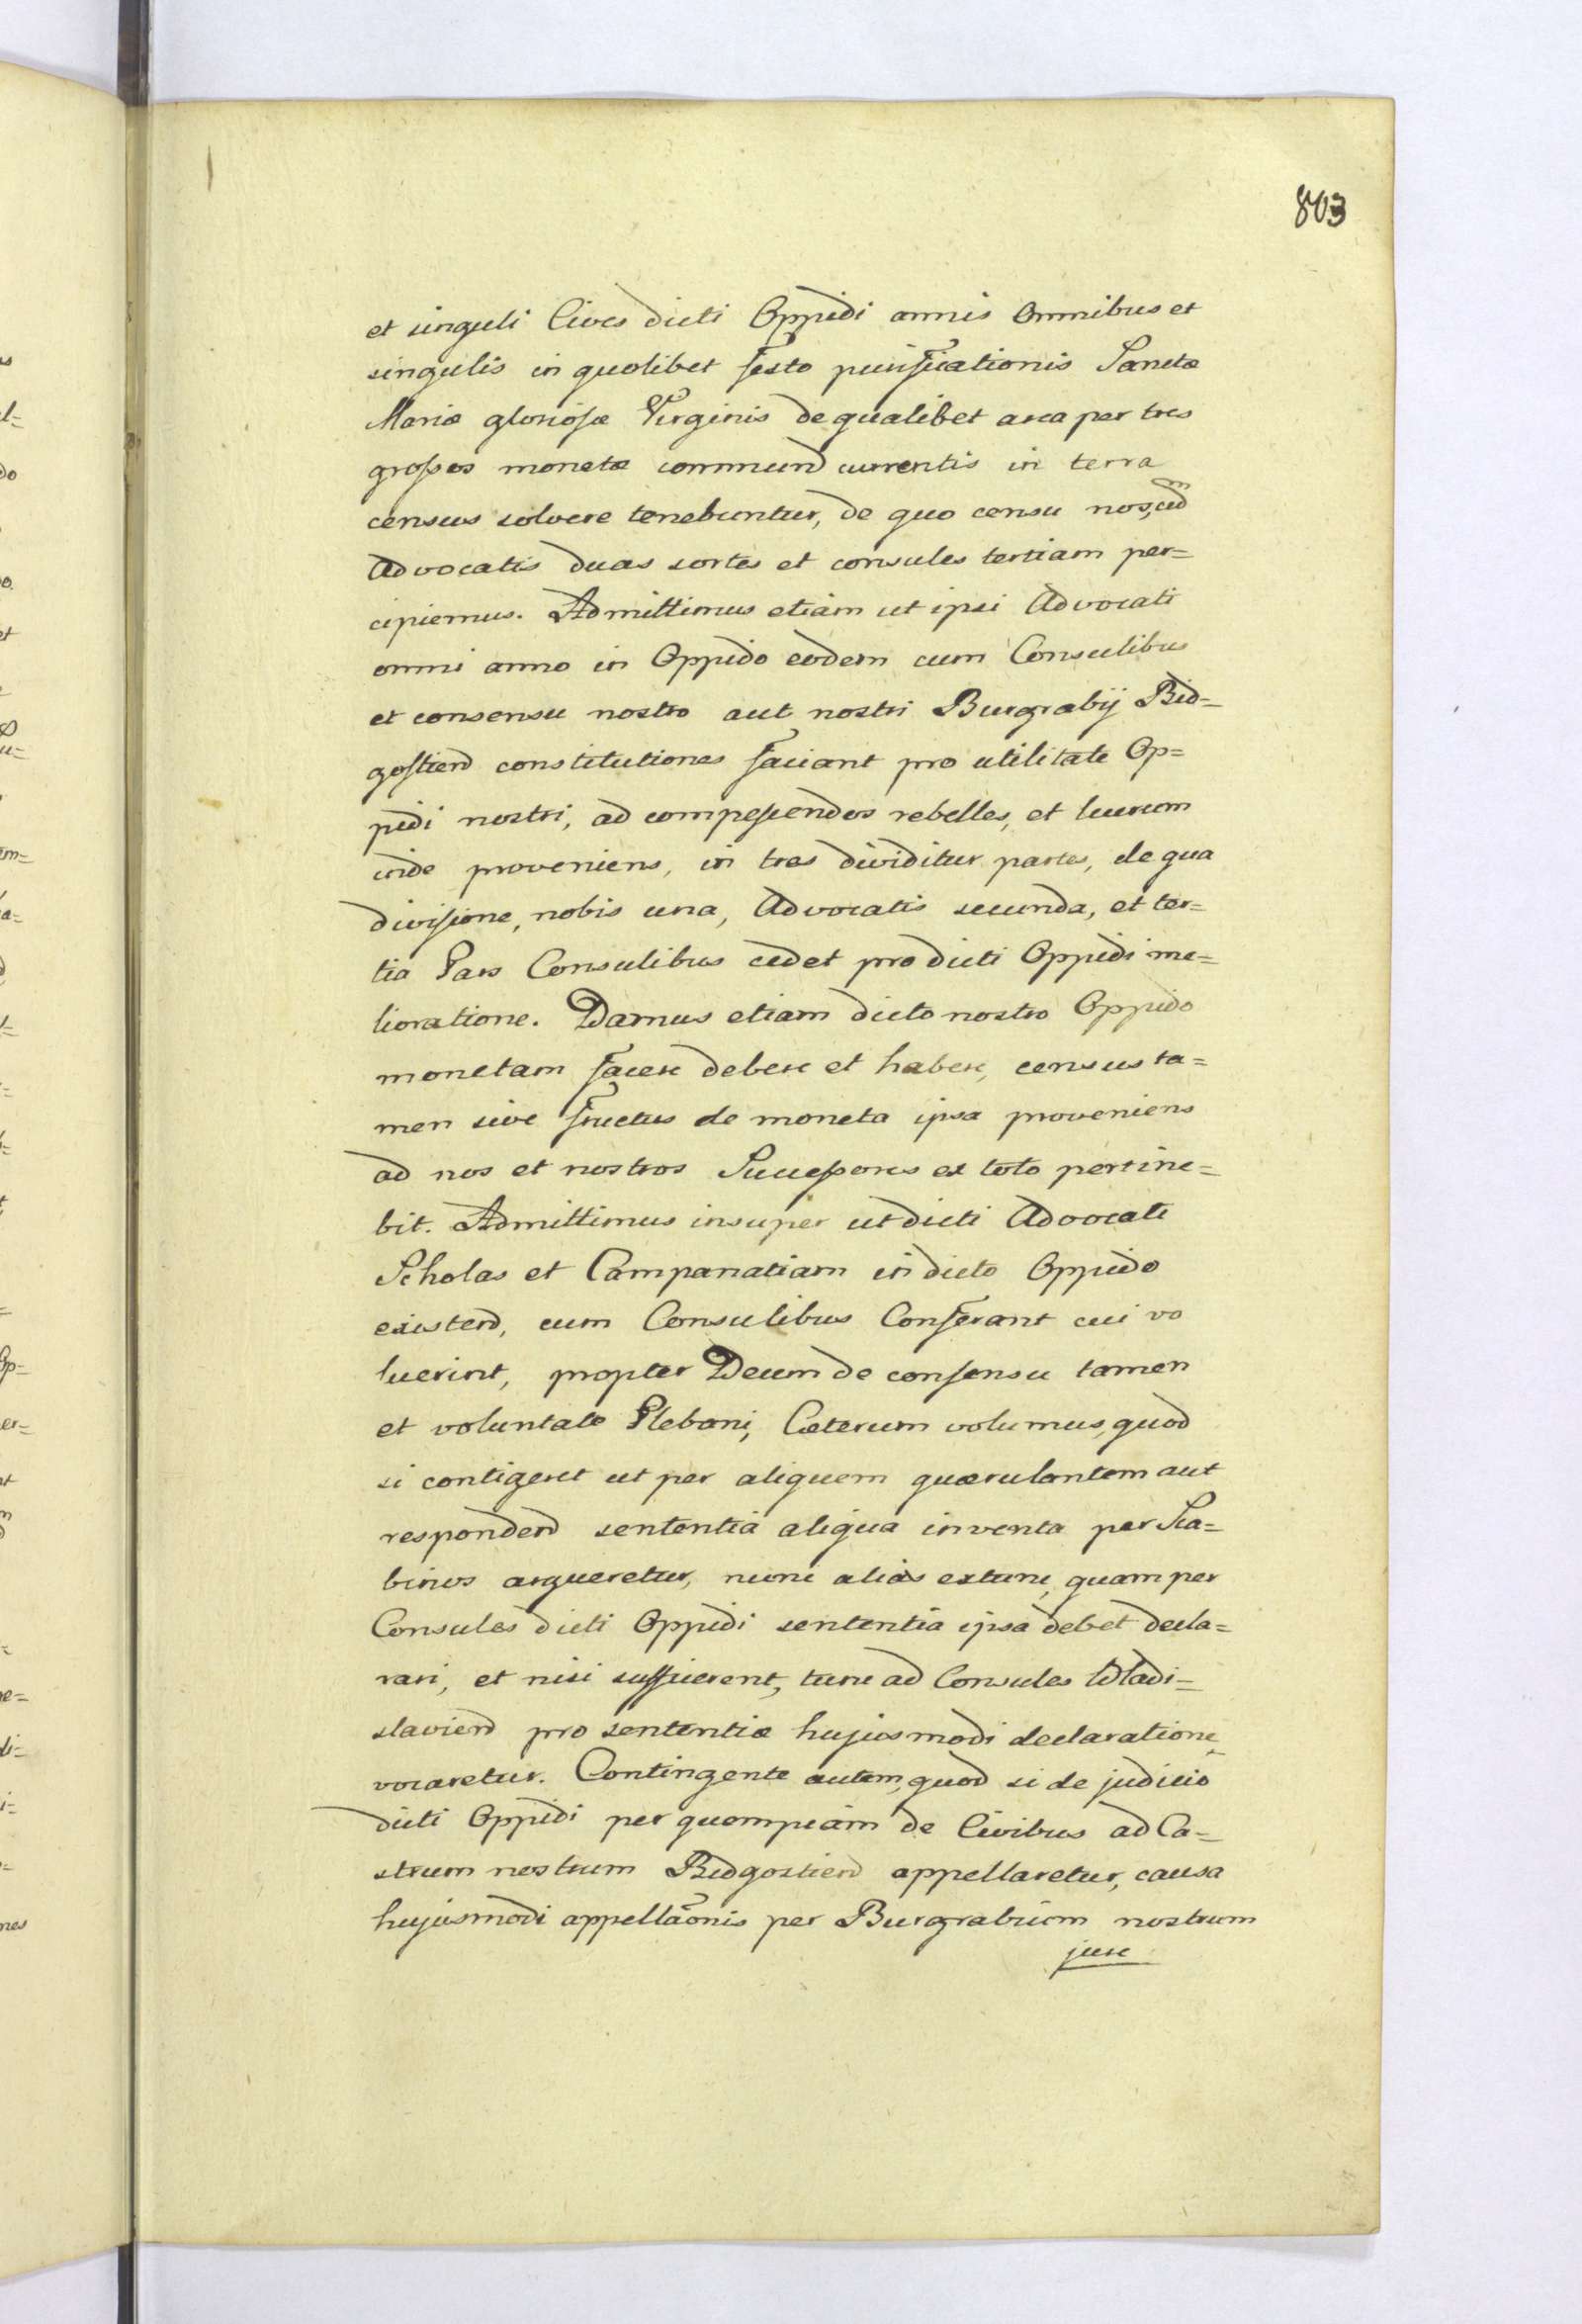 803
et singuli Cives dicti Oppidi annis Omnibus et
singulis in quolibet festo purificationis Sanctæ
Mariæ gloriosæ Virginis de qualibet area per tres
grossos monetæ commun currentis in terra
census solvere tenebuntur, de quo censu nos, cum
Advocatis duas sortes et consules tertiam per=
cipiemus. Admittimus etiam ut ipsi Advocati
omni anno in Oppido eodem cum Consulibus
et consensu nostro aut nostri Burgrabij Bid=
gostien constitutiones faciant pro utilitate Op=
pidi nostri, ad compescendos rebelles, et lucrum
inde proveniens, in tres dividitur partes, de qua
divisione, nobis una, Advocatis secunda, et ter=
tia Pars Consulibus cedet pro dicti Oppidi me=
lioratione. Damus etiam dicto nostro Oppido
monetam facere debere et habere, census ta=
men sive fructus de moneta ipsa proveniens
ad nos et nostros Successores ex toto pertine=
bit. Admittimus insuper ut dicti Advocati
Scholas et Campanatiam in dicto Oppido
existen, cum Consulibus Conferant cui vo
luerint, propter Deum de consensu tamen
et voluntate Plebani, Cæterum volumus, quod
si contigeret ut per aliquem quærulantem aut
responden sententia aliqua inventa per Sca=
binos argueretur, nunc alias extunc, quam per
Consules dicti Oppidi sententia ipsa debet decla=
rari, et nisi sufficerent, tunc ad Consules Wladi=
slavien pro sententiæ hujusmodi declaratione
vocaretur. Contingente autem, quod si de judicio
dicti Oppidi per quempiam de Civibus ad Ca=
strum nostrum Bidgostien appellaretur, causa
hujusmodi appellãonis per Burgrabium nostrum
jure